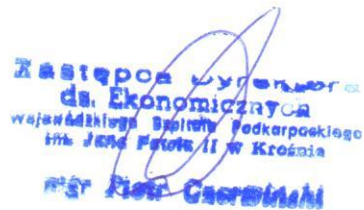 Zastępca Dyrektora
ds. Ekonomicznych
Wojewódzkiego Szpitala Podkarpackiego
im. Jana Pawła II w Krośnie
mgr Piotr Czerwiński